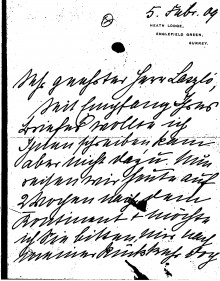 5. Febr. 09
HEATH LODGE,
ENGLEFIELD GREEN,
SURREY.
Sehr geehrter Herr
seit Empfang Ihres
Briefes wollte ich
Ihnen schreiben, kam
aber nicht dazu. Nun
reisen wir heute auf
2 Wochen nach dem
Kontinent & möchte
ich Sie bitten, mir nach
meiner